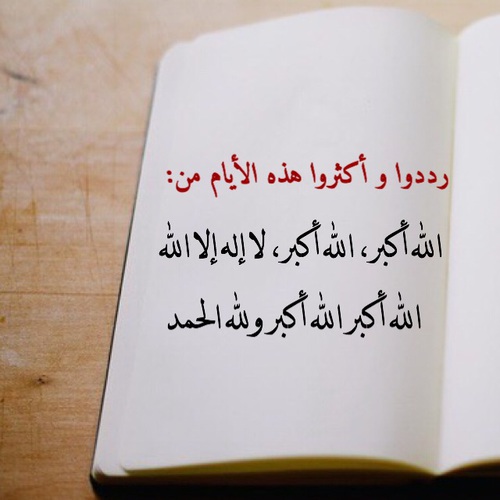 رددوا و أكثروا هذه الأيام من:
الله أكبر، الله أكبر، لا إله إلا الله
الله أكبر الله أكبر ولله الحمد